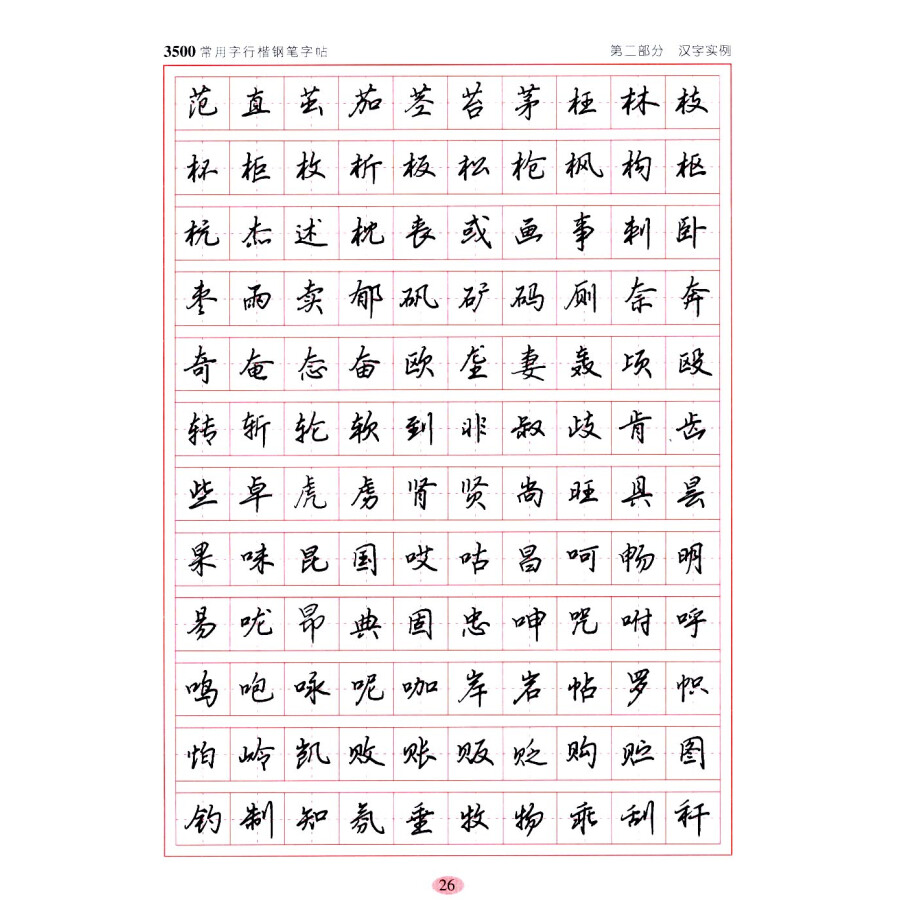 3500常用字行楷钢笔字帖 第二部分 汉字实例
范直茎茄茎苔茅枉林枝
杯柜枚析板松枪枫构枢
杭杰述枕丧或画事刺卧
枣雨卖郁矾矿码厕奈奔
奇奄态奋欧垄妻轰顷殴
转斩轮软到非叔歧肯齿
些卓虎虏肾贤尚旺具昙
果味昆国哎咕昌呵畅明
易咙昂典固忠呻咒咐呼
鸣咆咏呢咖岸岩帖罗帜
怕岭凯败账贩贬购贮图
钓制知氛垂牧物乖刮秆
26